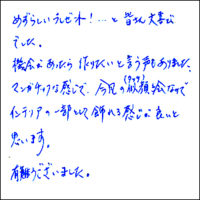 めずらしいプレゼント!…と皆さん大喜び
でした。
機会があったら作りたいと言う声もありました。
マンガチックな感じで、今風の(タッチ)似顔絵なので
インテリアの一部として飾れる感じが良いと
思います。
有難うございました。